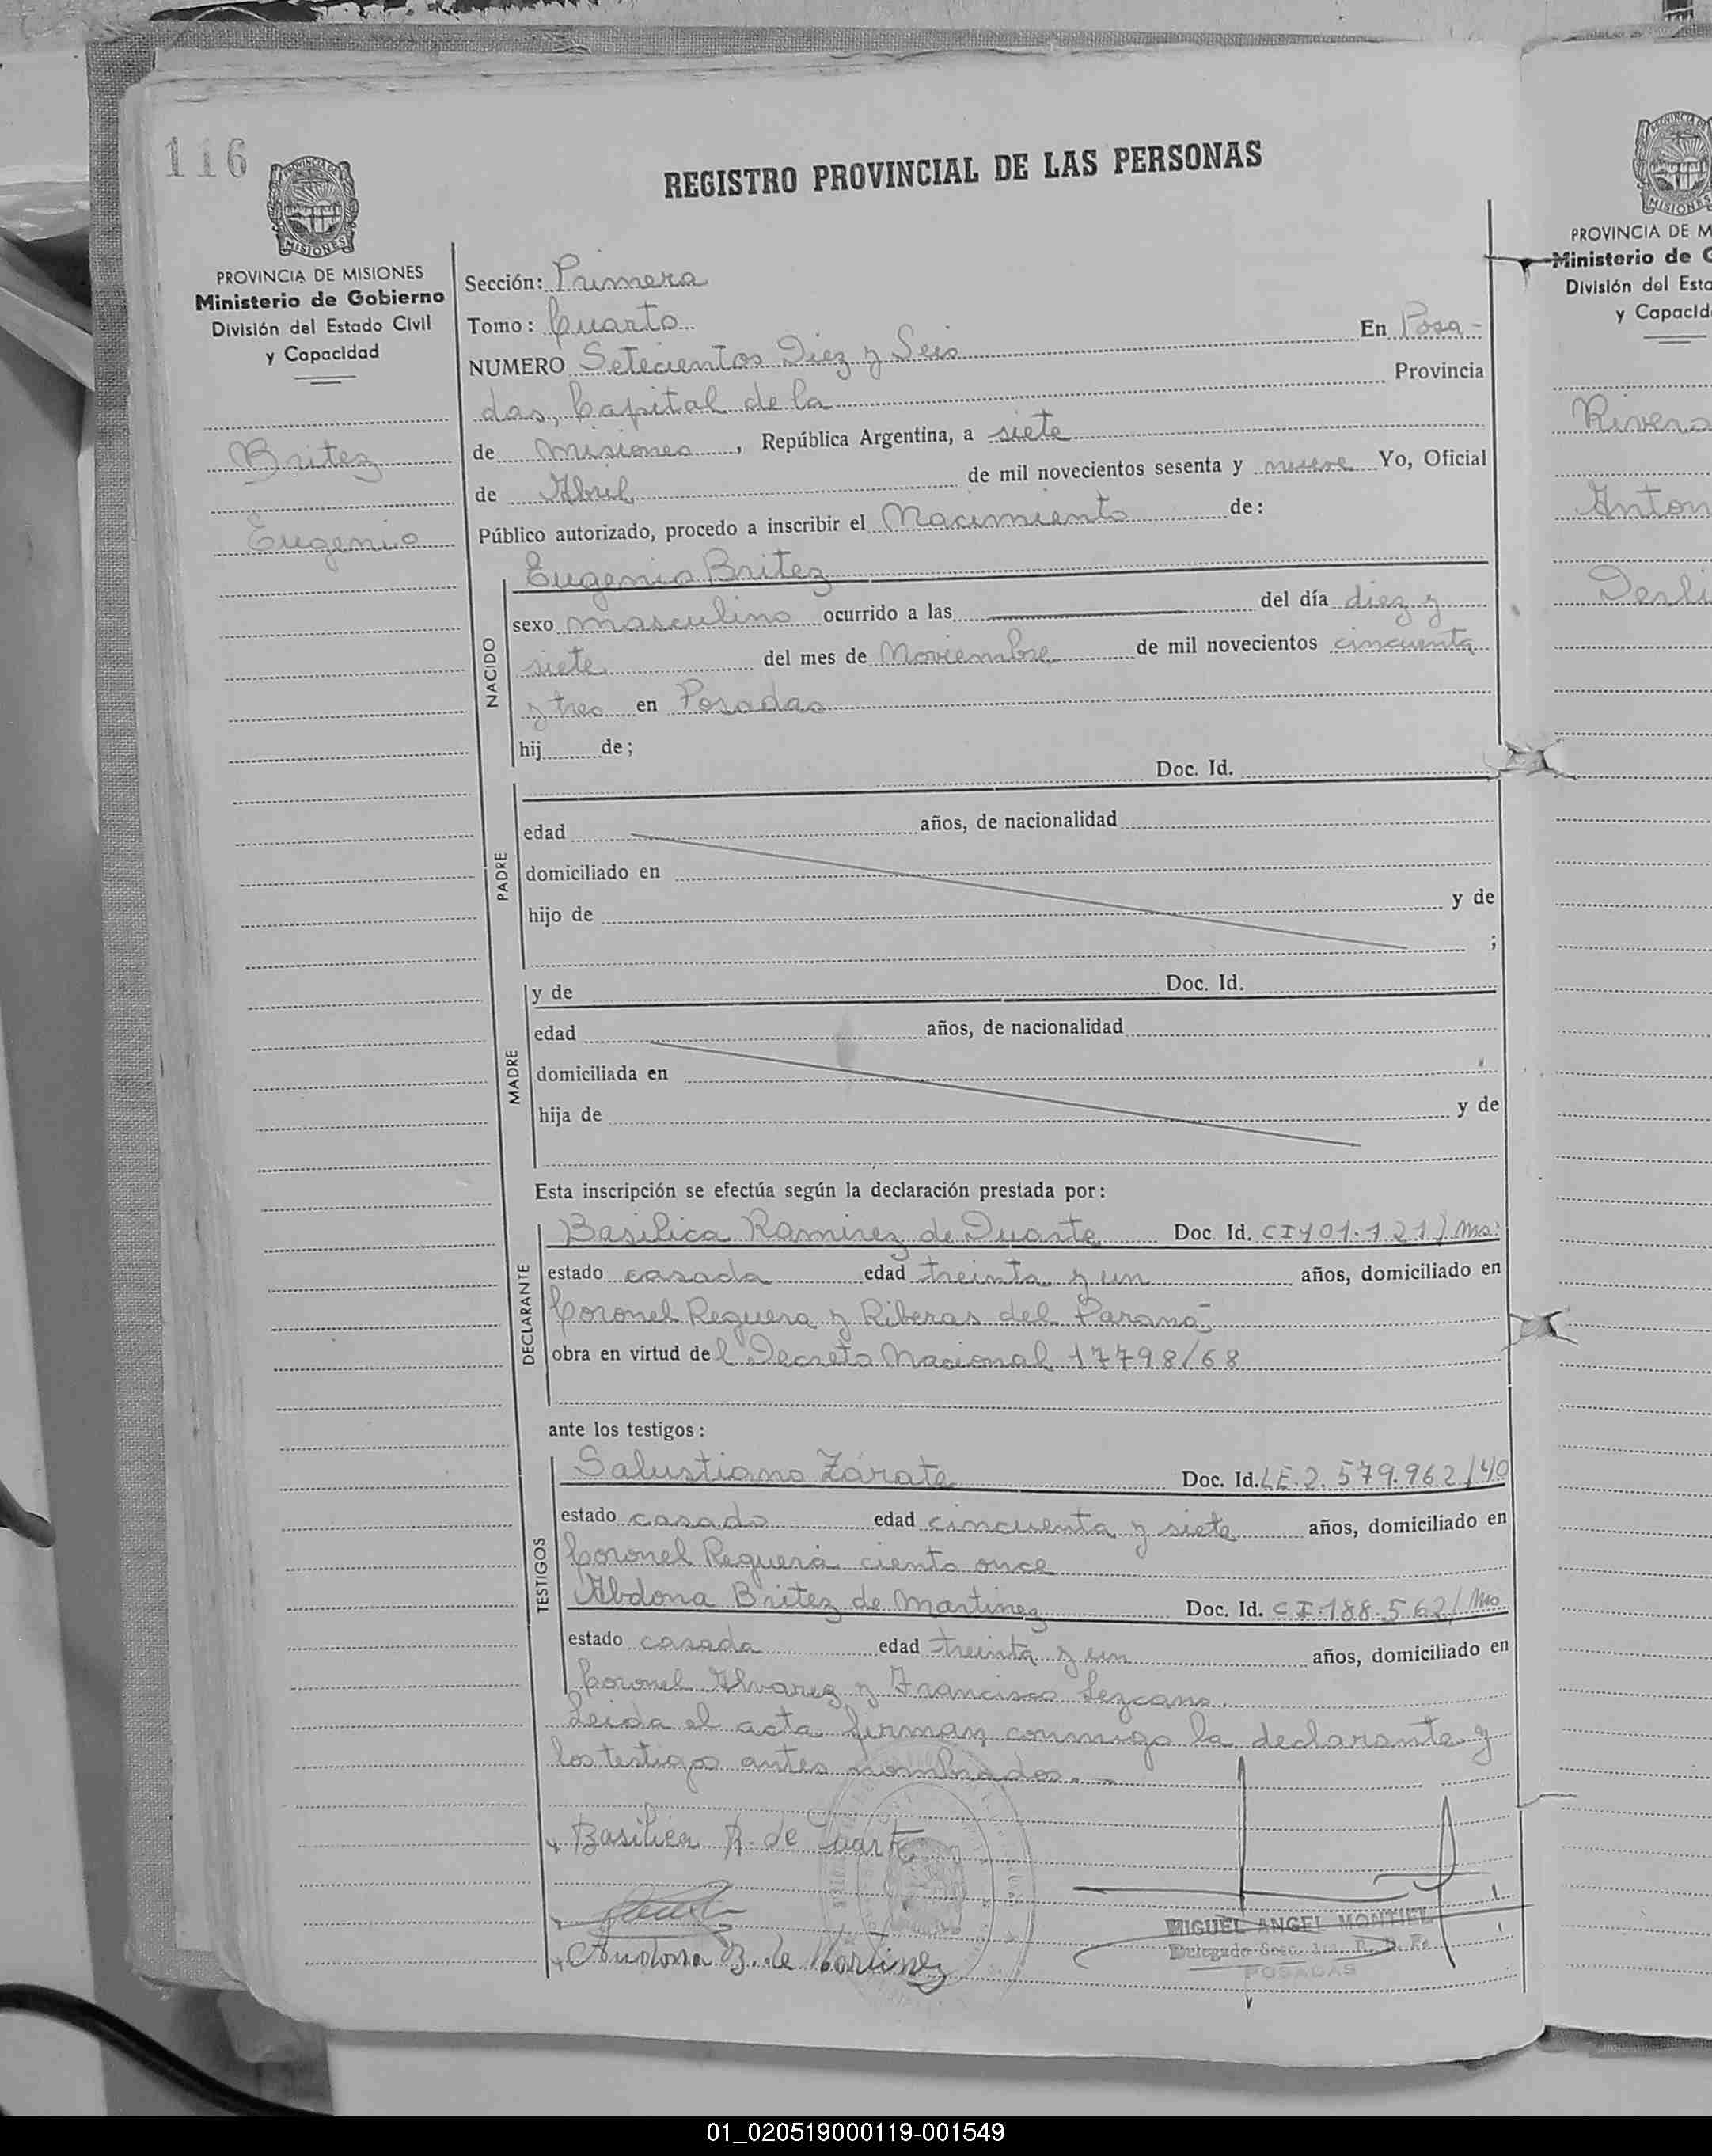 116
REGISTRO PROVINCIAL DE LAS PERSONAS
MISIONES
PROVINCIA DE MISIONES
Ministerio de Gobierno
División del Estado Civil
y Capacidad
Britez
Eugenio
Sección: Primera
Tomo: Cuarto
NUMERO Setecientos Diez y Seis En Posa-
das, Capital de la Provincia
de Misiones, República Argentina, a siete
de Abril de mil novecientos sesenta y nueve Yo, Oficial
Público autorizado, procedo a inscribir el Nacimiento de:
NACIDO
Eugenio Britez
sexo masculino ocurrido a las del día diez y
siete del mes de Noviembre de mil novecientos cincuenta
y tres en Posadas
hij de;
PADRE
Doc. Id.
edad años, de nacionalidad
domiciliado en
hijo de y de
;
MADRE
y de Doc. Id.
edad años, de nacionalidad
domiciliada en
hija de y de
Esta inscripción se efectúa según la declaración prestada por:
DECLARANTE
Basilica Ramirez de Duarte Doc. Id. CI
estado casada edad treinta y un años, domiciliado en
Coronel Reguera y Riberas del Paraná-
obra en virtud del Decreto Nacional 17798/68
ante los testigos:
TESTIGOS
Salustiano Zárate Doc. Id. LE.2.579.962/40
estado casado edad cincuenta y siete años, domiciliado en
Coronel Reguera ciento once
Abdona Britez de Martinez Doc. Id. CI.188.562/Mio
estado casada edad treinta y un años, domiciliado en
Coronel Alvarez y Francisco Lezcano.
Leida el acta firman conmigo la declarante y
los testigos antes nombrados.-
Basilica R. de Duarte
B. de Martinez
MIGUEL ANGEL MONTIEL
Delegado Secc. 1ra. R. P. Ps.
POSADAS
MISIONES
PROVINCIA DE M
Ministerio de G
División del Esta
y Capacid
Rivero
Anton
Desli
01_020519000119-001549